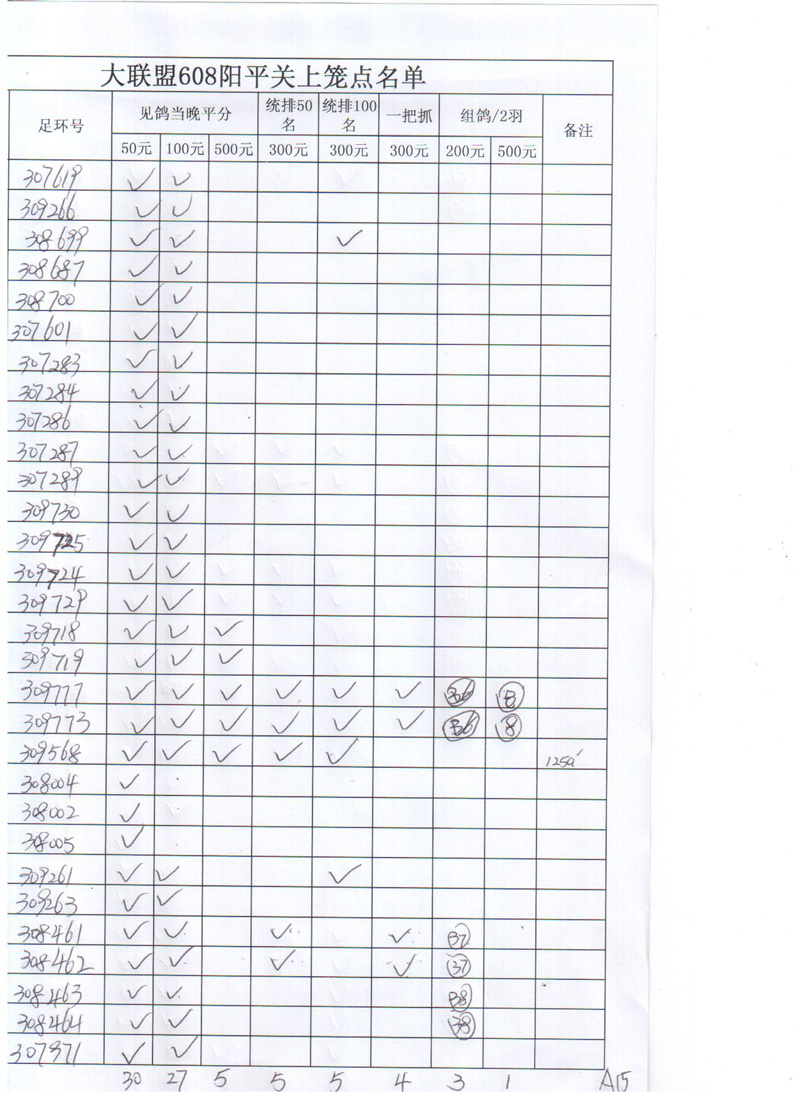 大联盟608阳平关上笼点名单
足环号 见鸽当晚平分 统排50名 统排100名 一把抓 组鸽/2羽 备注
50元 100元 500元 300元 300元 300元 200元 500元
307619 ✓ ✓
309266 ✓ ✓
308699 ✓ ✓ ✓
308687 ✓ ✓
308700 ✓ ✓
307601 ✓ ✓
307283 ✓ ✓
307284 ✓ ✓
307286 ✓ ✓
307287 ✓ ✓
307289 ✓ ✓
309730 ✓ ✓
309725 ✓ ✓
309724 ✓ ✓
309729 ✓ ✓
309718 ✓ ✓ ✓
309719 ✓ ✓ ✓
309777 ✓ ✓ ✓ ✓ ✓ ✓
309773 ✓ ✓ ✓ ✓ ✓ ✓ 8
309568 ✓ ✓ ✓ ✓ ✓
308004 ✓
308002 ✓
308005 ✓
309261 ✓ ✓ ✓
309263 ✓ ✓
308461 ✓ ✓ ✓ ✓ 37
308462 ✓ ✓ ✓ ✓ 37
308463 ✓ ✓ 38
308464 ✓ ✓ 38
307971 ✓ ✓
30 27 5 5 5 4 3 1 A15